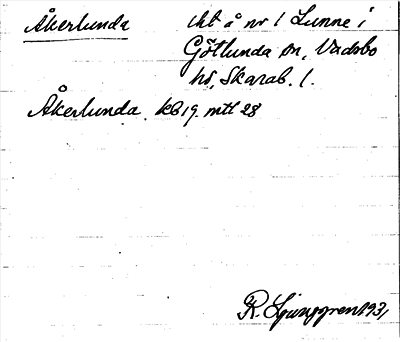 Åkerlunda lht å nr 1 Lunne i
Götlunda sn, Vadsbo
hd, Skarab. l.
Åkerlunda kb 19. mtl 28
R. Ljunggren 1931